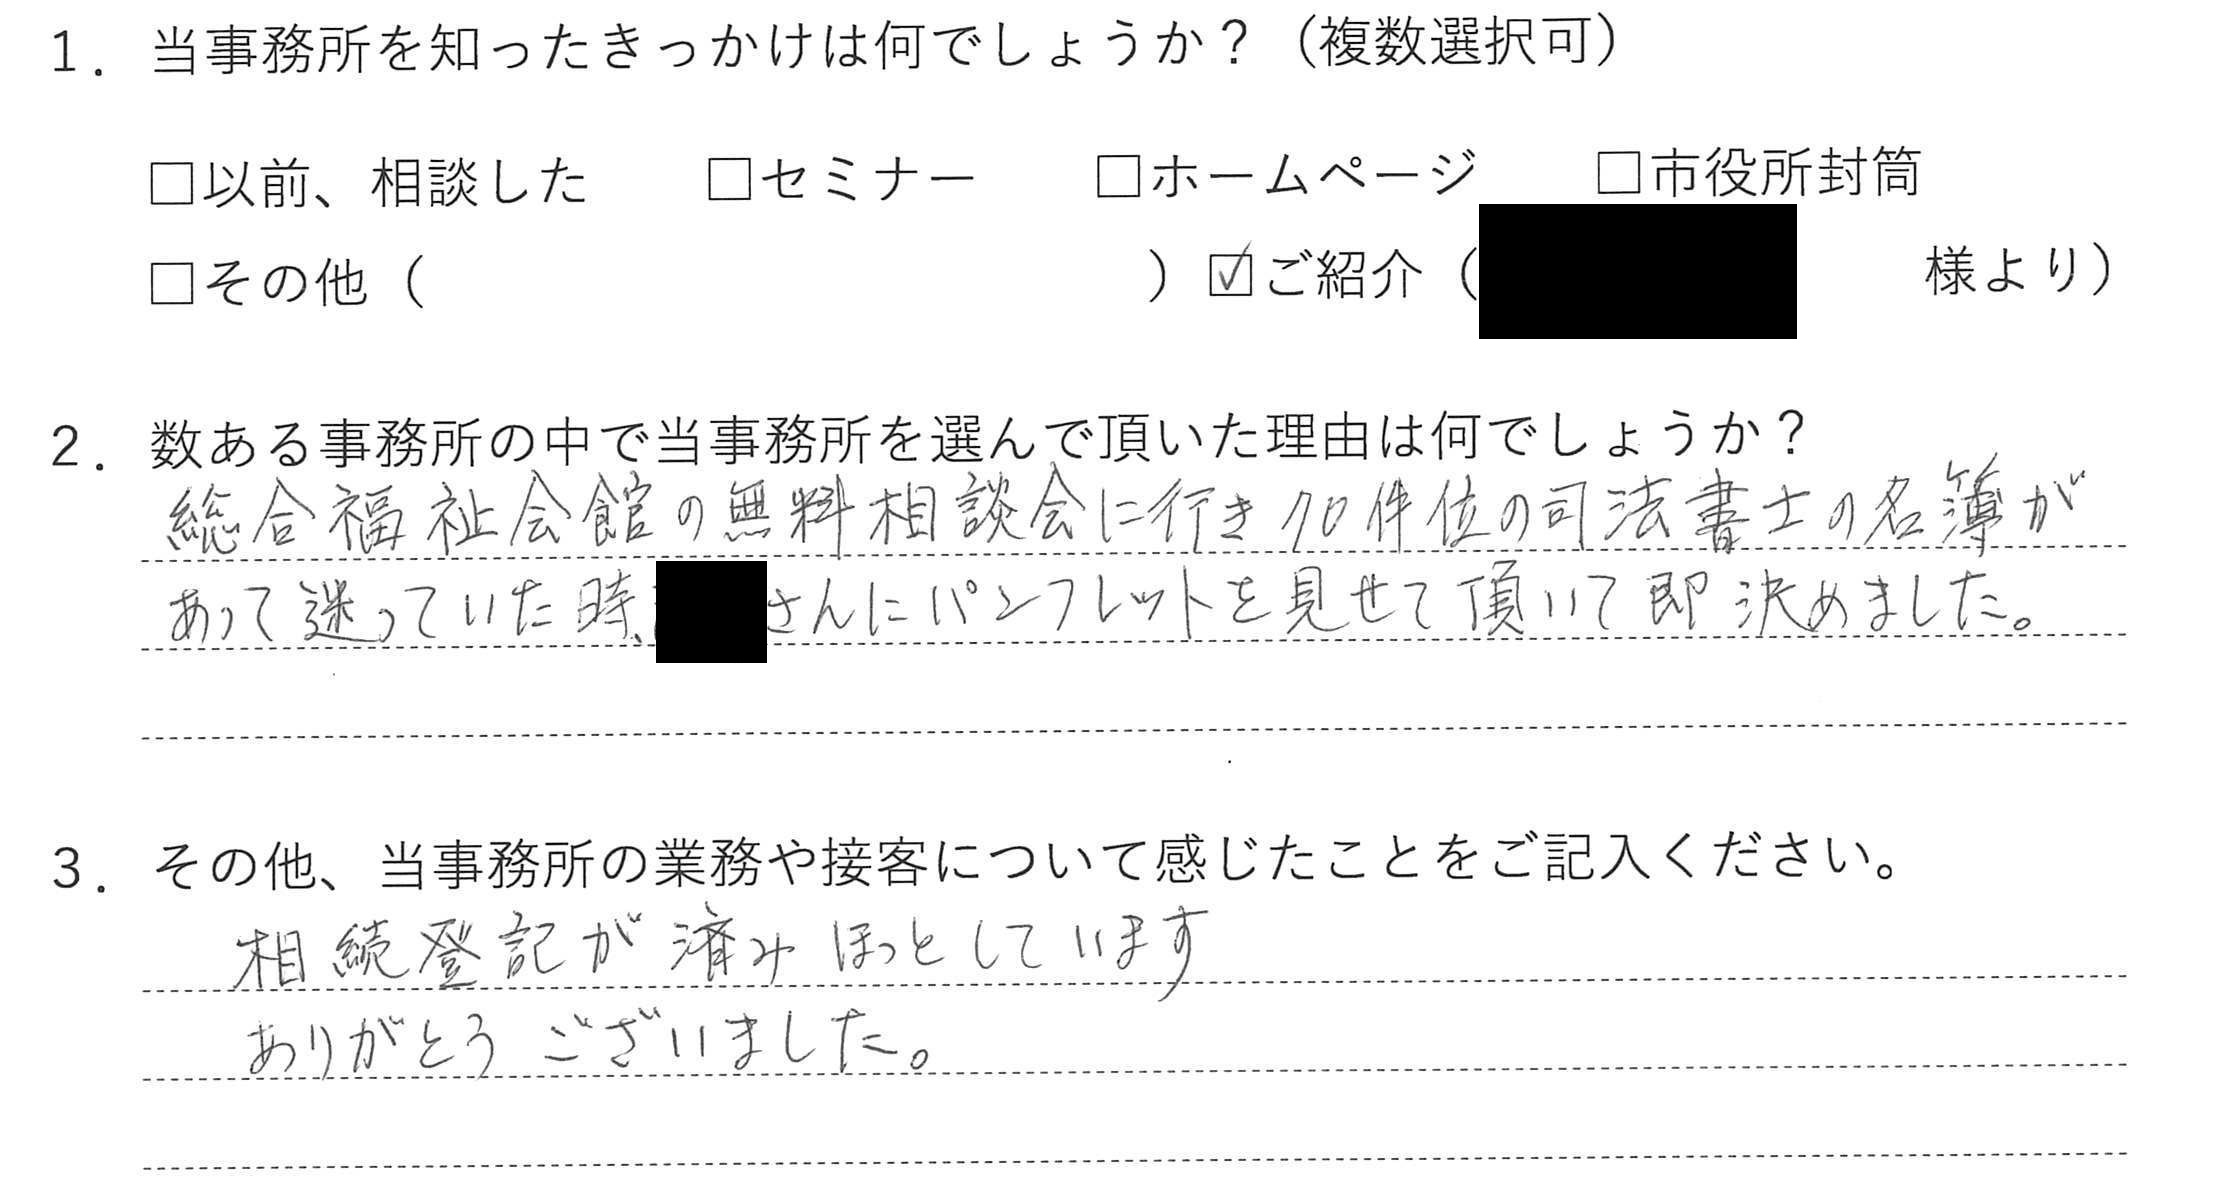 1．当事務所を知ったきっかけは何でしょうか？（複数選択可）
□以前、相談した　□セミナー　□ホームページ　□市役所封筒
□その他（　　　）☑ご紹介（　　　様より）
2．数ある事務所の中で当事務所を選んで頂いた理由は何でしょうか？
総合福祉会館の無料相談会に行き70件位の司法書士の名簿が
あって迷っていた時、さんにパンフレットを見せて頂いて即決めました。
3．その他、当事務所の業務や接客について感じたことをご記入ください。
相続登記が済みほっとしています
ありがとうございました。